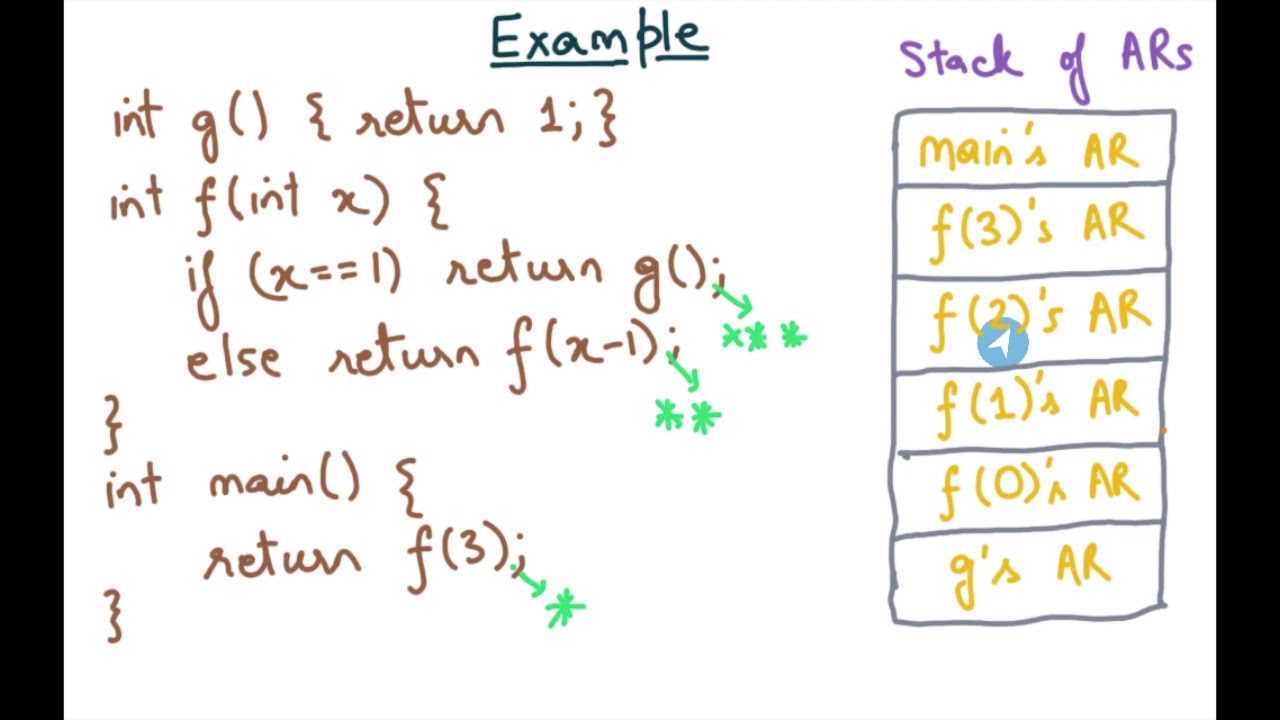 Example
int g() { return 1; }
int f(int x) {
if (x==1) return g();
***
else return f(x-1);
**
}
int main() {
return f(3);
*
}
Stack of ARs
main's AR
f(3)'s AR
f(2)'s AR
f(1)'s AR
f(0)'s AR
g's AR